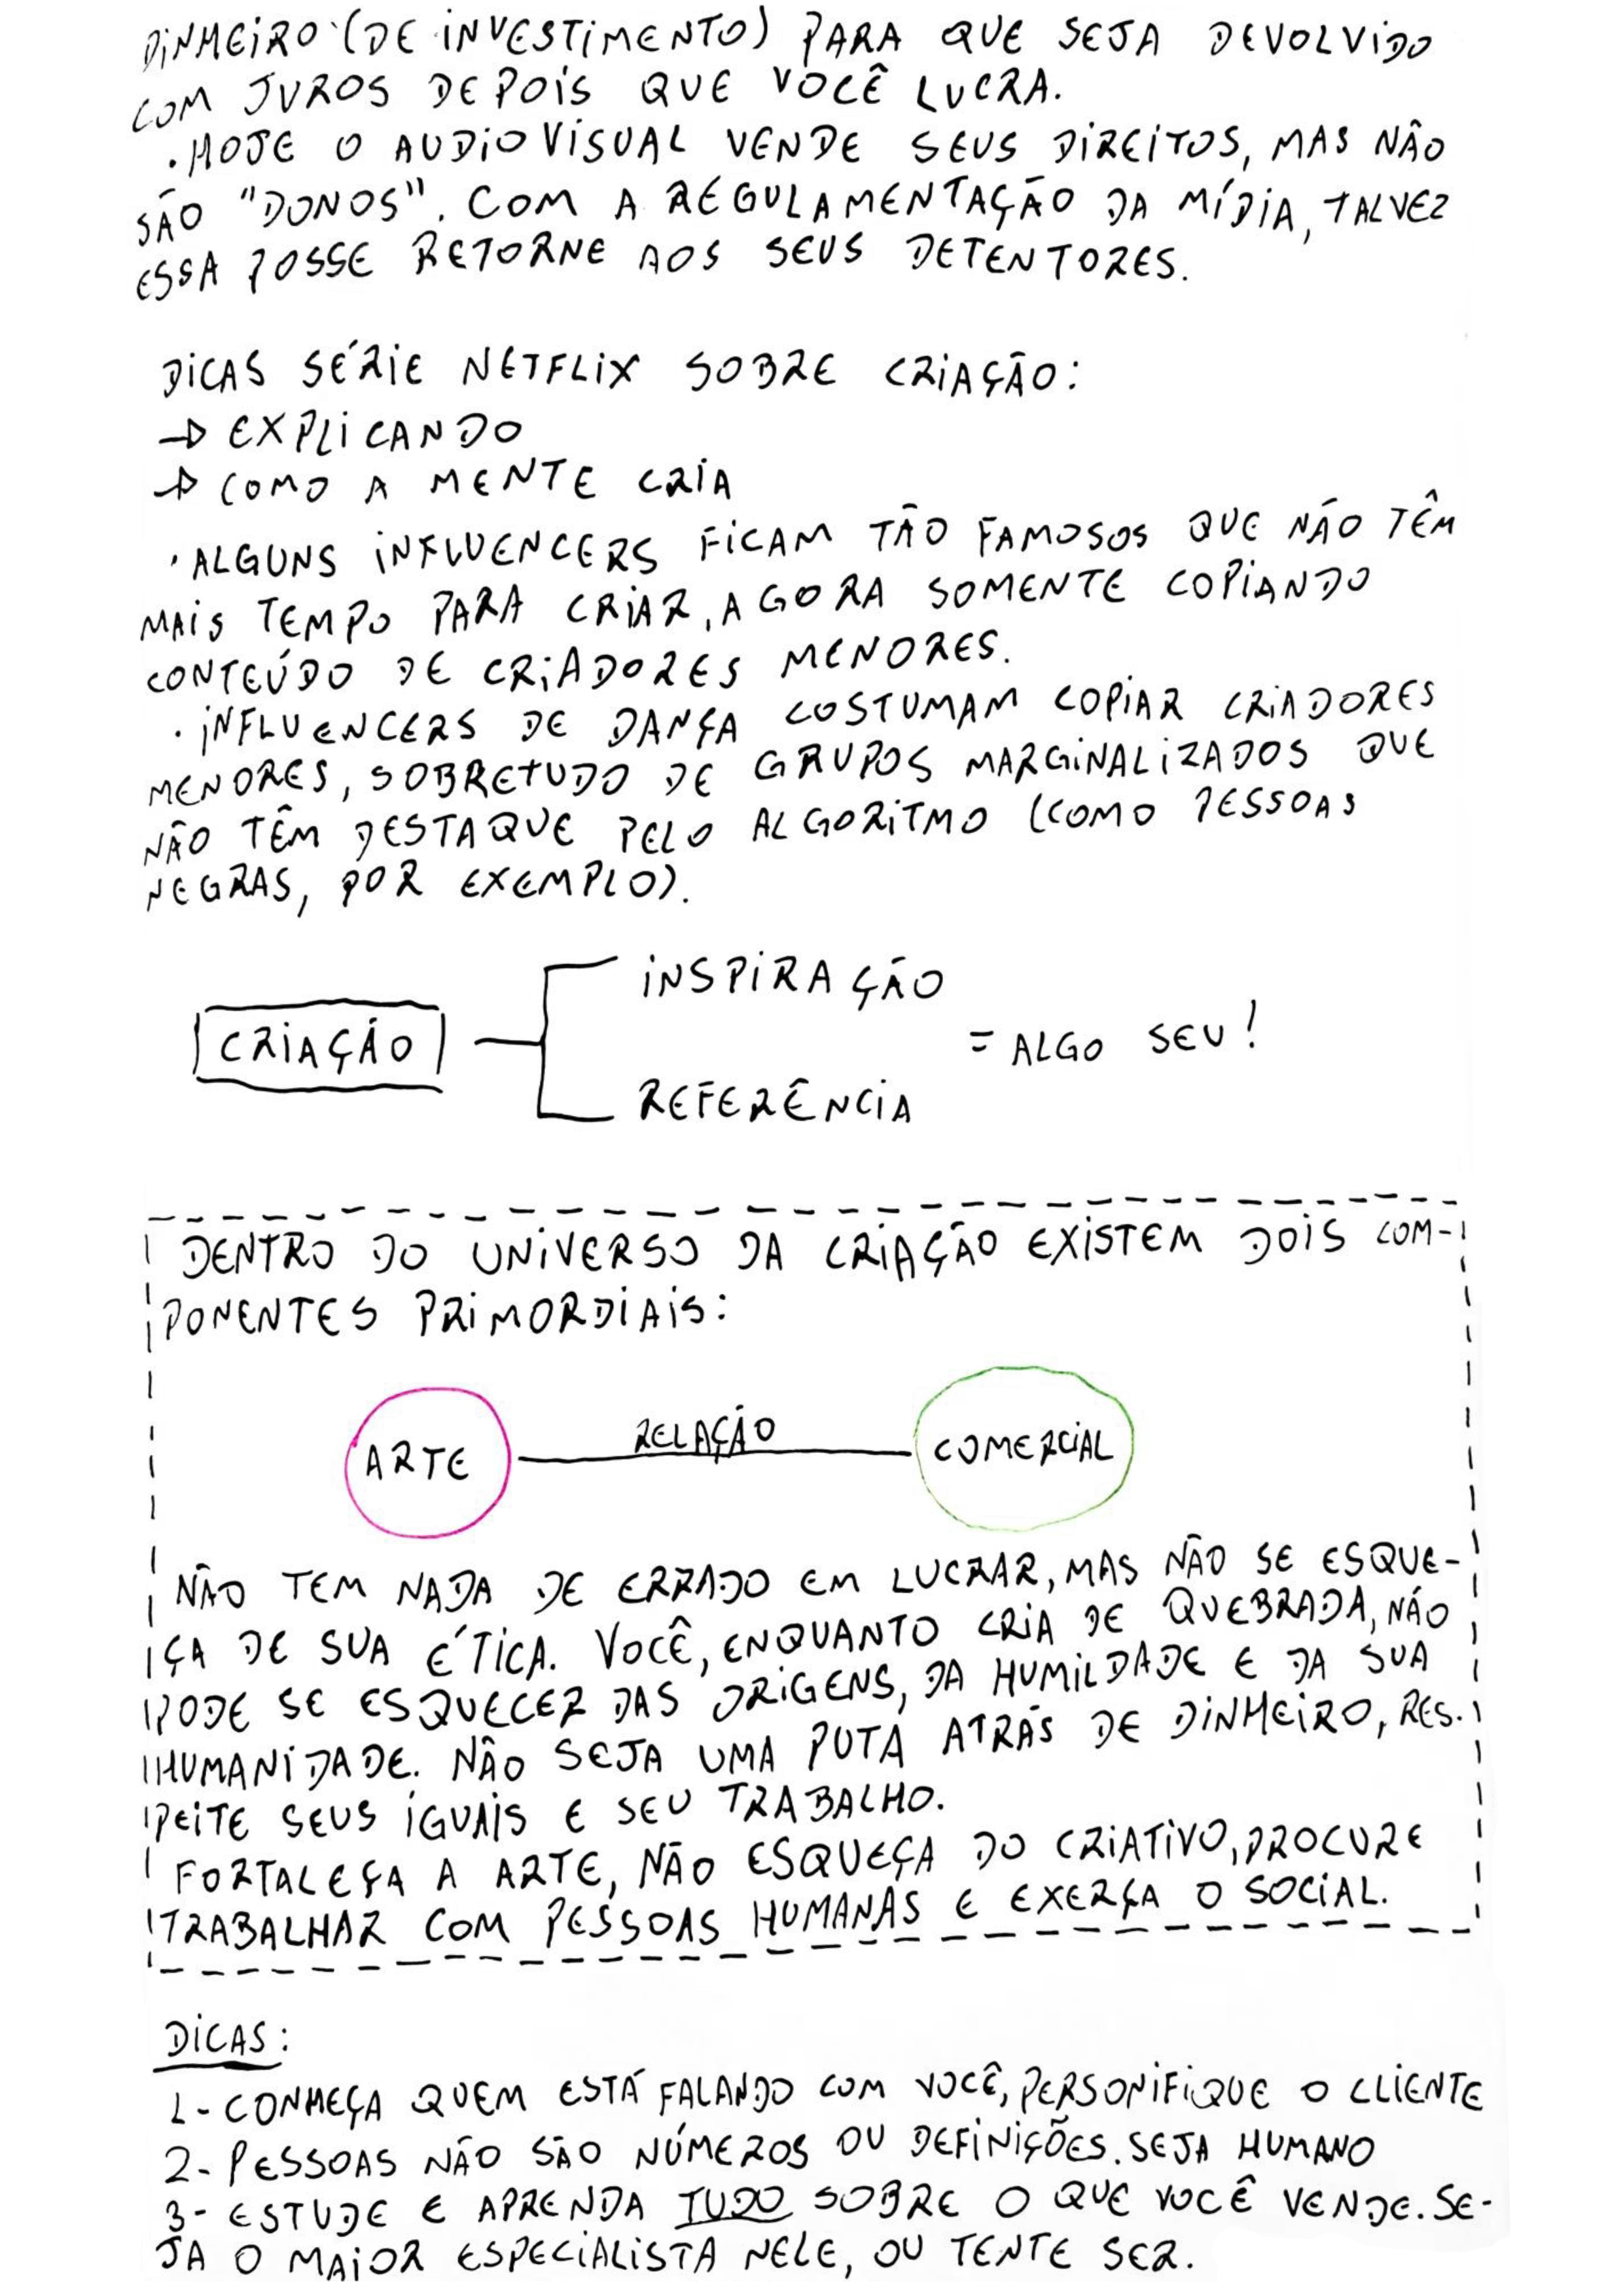 DINHEIRO (DE INVESTIMENTO) PARA QUE SEJA DEVOLVIDO
COM JUROS DEPOIS QUE VOCÊ LUCRA.
. HOJE O AUDIOVISUAL VENDE SEUS DIREITOS, MAS NÃO
SÃO "DONOS". COM A REGULAMENTAÇÃO DA MÍDIA, TALVEZ
ESSA POSSE RETORNE AOS SEUS DETENTORES.
DICAS SÉRIE NETFLIX SOBRE CRIAÇÃO:
→ EXPLICANDO
→ COMO A MENTE CRIA
. ALGUNS INFLUENCERS FICAM TÃO FAMOSOS QUE NÃO TÊM
MAIS TEMPO PARA CRIAR, AGORA SOMENTE COPIANDO
CONTEÚDO DE CRIADORES MENORES.
. INFLUENCERS DE DANÇA COSTUMAM COPIAR CRIADORES
MENORES, SOBRETUDO DE GRUPOS MARGINALIZADOS QUE
NÃO TÊM DESTAQUE PELO ALGORITMO (COMO PESSOAS
NEGRAS, POR EXEMPLO).
INSPIRAÇÃO
CRIAÇÃO
= ALGO SEU!
REFERÊNCIA
DENTRO DO UNIVERSO DA CRIAÇÃO EXISTEM DOIS COM-
PONENTES PRIMORDIAIS:
ARTE
RELAÇÃO
COMERCIAL
NÃO TEM NADA DE ERRADO EM LUCRAR, MAS NÃO SE ESQUE-
ÇA DE SUA ÉTICA. VOCÊ, ENQUANTO CRIA DE QUEBRADA, NÃO
PODE SE ESQUECER DAS ORIGENS, DA HUMILDADE E DA SUA
HUMANIDADE. NÃO SEJA UMA PUTA ATRÁS DE DINHEIRO, RES-
PEITE SEUS IGUAIS E SEU TRABALHO.
FORTALEÇA A ARTE, NÃO ESQUEÇA DO CRIATIVO, PROCURE
TRABALHAR COM PESSOAS HUMANAS E EXERÇA O SOCIAL.
DICAS:
1- CONHEÇA QUEM ESTÁ FALANDO COM VOCÊ, PERSONIFIQUE O CLIENTE
2- PESSOAS NÃO SÃO NÚMEROS OU DEFINIÇÕES. SEJA HUMANO
3- ESTUDE E APRENDA TUDO SOBRE O QUE VOCÊ VENDE. SE-
JA O MAIOR ESPECIALISTA NELE, OU TENTE SER.